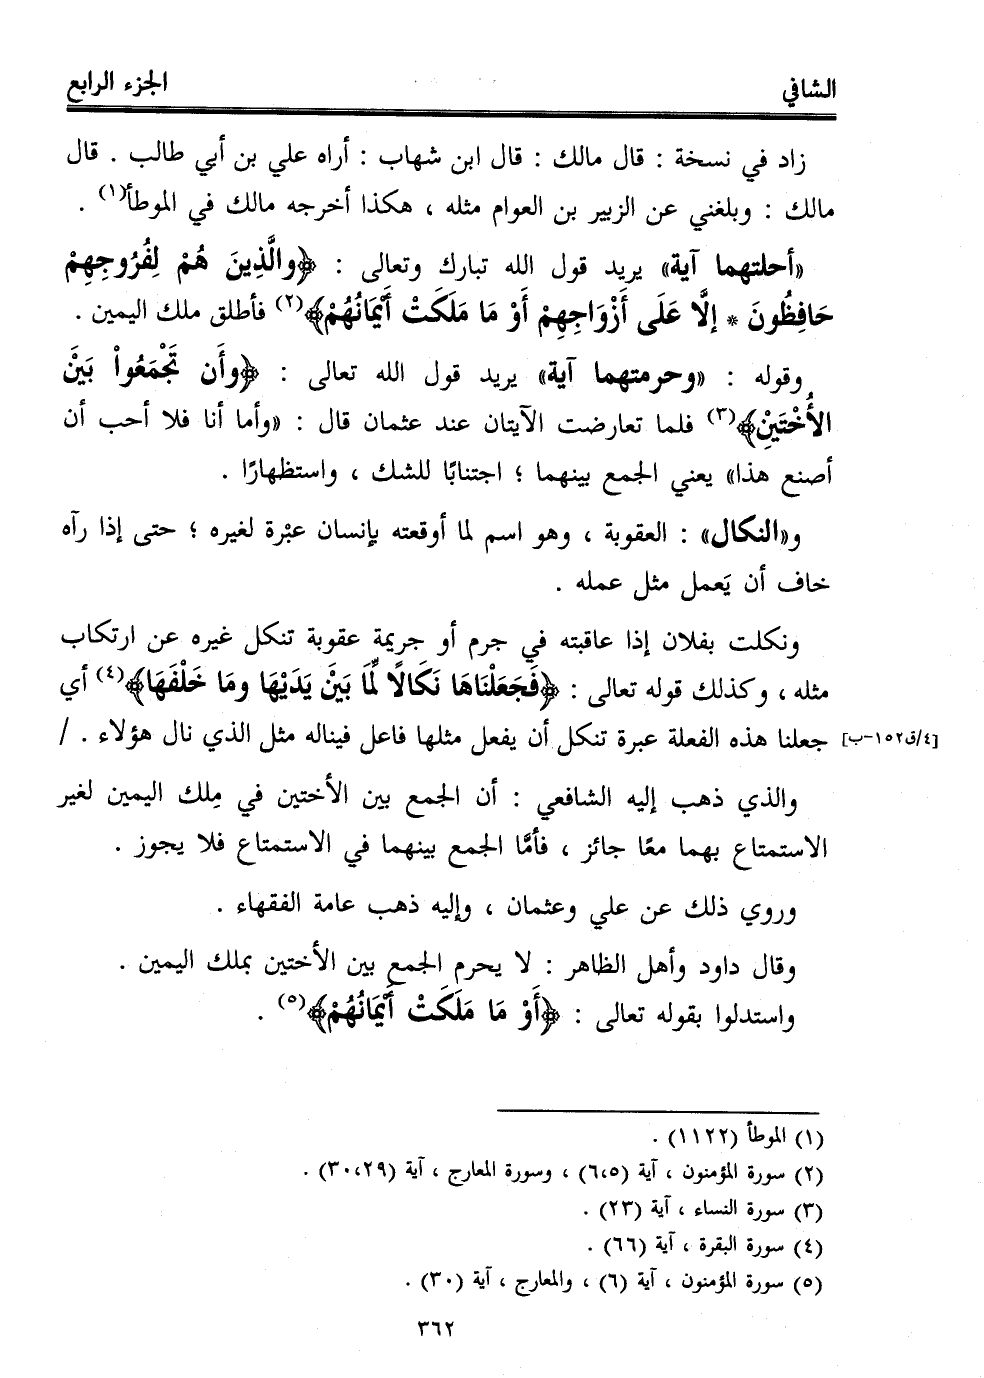 الشافي
الجزء الرابع
زاد في نسخة : قال مالك : قال ابن شهاب : أراه علي بن أبي طالب . قال
مالك : وبلغني عن الزبير بن العوام مثله ، هكذا أخرجه مالك في الموطأ(١) .
«أحلتهما آية» يريد قول الله تبارك وتعالى : ﴿والَّذِينَ هُمْ لِفُرُوجِهِمْ
حَافِظُونَ * إلَّا عَلَى أَزْوَاجِهِمْ أَوْ مَا مَلَكَتْ أَيْمَانُهُمْ﴾(٢) فأطلق ملك اليمين .
وقوله : «وحرمتهما آية» يريد قول الله تعالى : ﴿وأَن تَجْمَعُواْ بَيْنَ
الأُخْتَيْنِ﴾(٣) فلما تعارضت الآيتان عند عثمان قال : «وأما أنا فلا أحب أن
أصنع هذا» يعني الجمع بينهما ؛ اجتنابًا للشك ، واستظهارًا .
و«النكال» : العقوبة ، وهو اسم لما أوقعته بإنسان عبْرة لغيره ؛ حتى إذا رآه
خاف أن يَعمل مثل عمله .
ونكلت بفلان إذا عاقبته في جرم أو جريمة عقوبة تنكل غيره عن ارتكاب
مثله ، وكذلك قوله تعالى : ﴿فَجَعَلْنَاهَا نَكَالًا لِّمَا بَيْنَ يَدَيْهَا ومَا خَلْفَهَا﴾(٤) أي
جعلنا هذه الفعلة عبرة تنكل أن يفعل مثلها فاعل فيناله مثل الذي نال هؤلاء . /
[٤/ق١٥٢-ب]
والذي ذهب إليه الشافعي : أن الجمع بين الأختين في مِلك اليمين لغير
الاستمتاع بهما معًا جائز ، فأمَّا الجمع بينهما في الاستمتاع فلا يجوز .
وروي ذلك عن علي وعثمان ، وإليه ذهب عامة الفقهاء .
وقال داود وأهل الظاهر : لا يحرم الجمع بين الأختين بملك اليمين .
واستدلوا بقوله تعالى : ﴿أَوْ مَا مَلَكَتْ أَيْمَانُهُمْ﴾(٥) .
(١) الموطأ (١١٢٢) .
(٢) سورة المؤمنون ، آية (٦،٥) ، وسورة المعارج ، آية (٣٠،٢٩) .
(٣) سورة النساء ، آية (٢٣) .
(٤) سورة البقرة ، آية (٦٦) .
(٥) سورة المؤمنون ، آية (٦) ، والمعارج ، آية (٣٠) .
٣٦٢